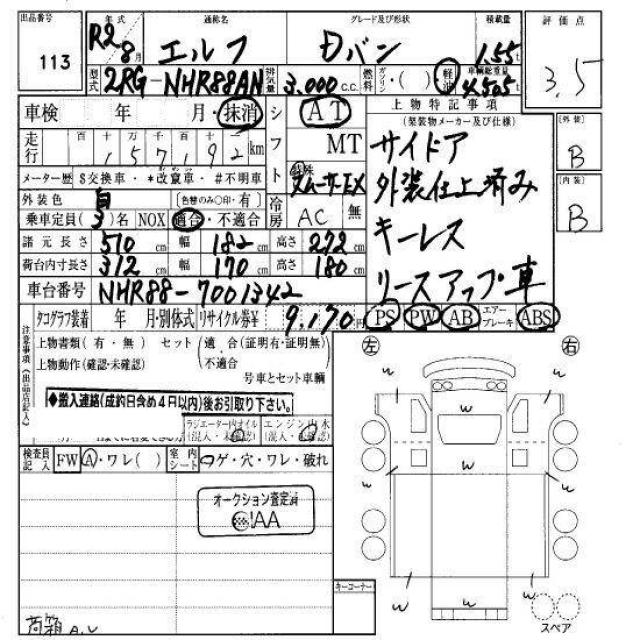 出品番号 113
年式 R2 8月
通称名 エルフ
グレード及び形状 Dバン
積載量 1.55t
評価点 3.5
型式 2RG-NHR88AN
排気量 3.000 C.C.
燃料 ガソリン・( )・軽油
車輌総重量 4505t
車検 年 月・抹消
シフト AT MT
走行 百十万千百十一 157192km
特殊 スムーサーEX
メーター歴 $交換車・*改竄車・#不明車
外装色 白 (色替のみ○印・有)
冷房 AC 無
乗車定員(3)名 NOX 適合・不適合
諸元長さ 510cm 幅 182cm 高さ 272cm
荷台内寸長さ 312cm 幅 170cm 高さ 180cm
車台番号 NHR88-7001342
上物特記事項
(架装物メーカー及び仕様)
サイドア
外装仕上済み
キーレス
リースアップ車
[外装]
B
[内装]
B
タコグラフ装着 年 月・別体式 リサイクル券¥ 9,170円
PS PW AB エアーブレーキ ABS
注意事項(出品店記入)
上物書類(有・無) セット(適合(証明有・証明無)
上物動作(確認・未確認) (不適合
号車とセット車輌
◆搬入連絡(成約日含め4日以内)後お引取り下さい。
ラジエーター内オイル (混入・未確認)
エンジン内水 (混入・未確認)
検査員記入 FW A・ワレ( ) 室内シート コゲ・穴・ワレ・破れ
オークション査定済
IAA
荷箱 A.U
キーコーナー
左 右
w w
w
w w
w w
w w w
スペア